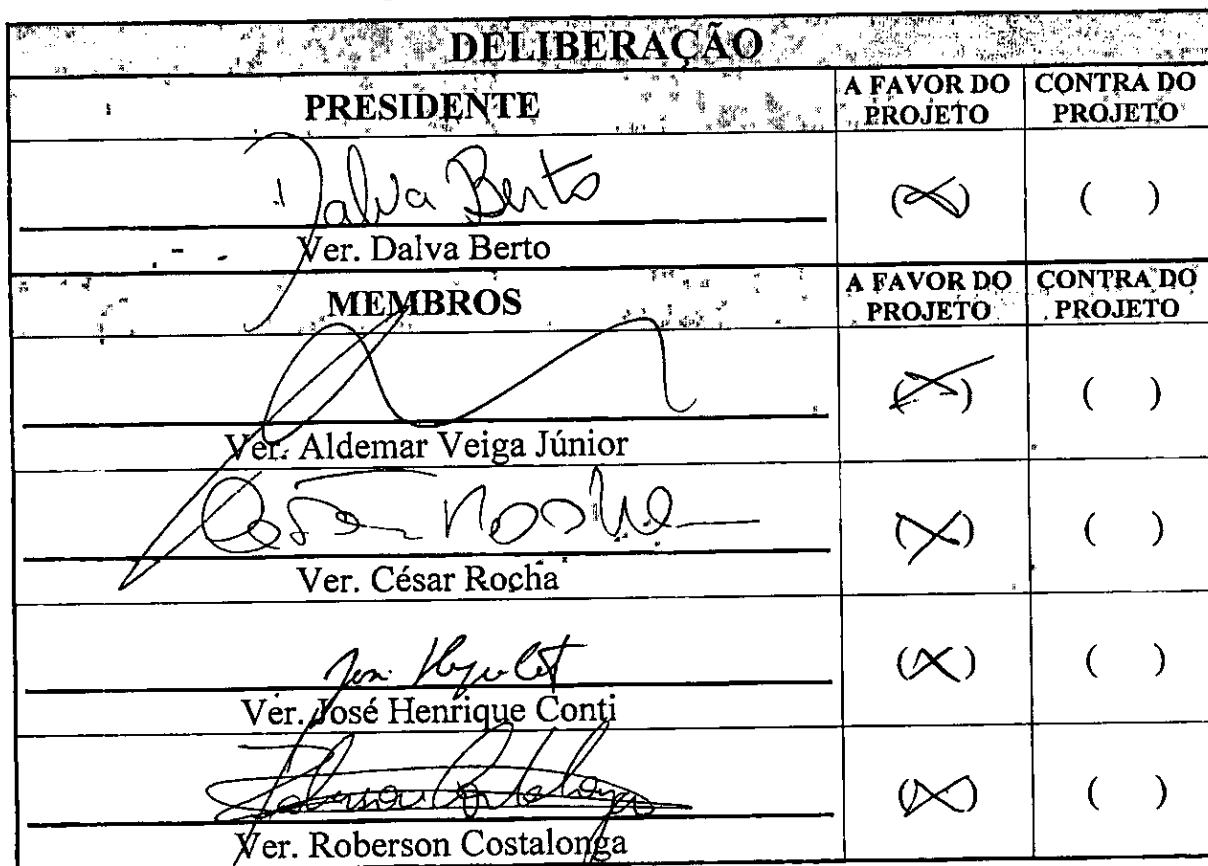 DELIBERAÇÃO
PRESIDENTE A FAVOR DO PROJETO CONTRA DO PROJETO
Dalva Berto (X) ( )
Ver. Dalva Berto
MEMBROS A FAVOR DO PROJETO CONTRA DO PROJETO
(X) ( )
Ver. Aldemar Veiga Júnior
César Rocha (X) ( )
Ver. César Rocha
(X) ( )
Ver. José Henrique Conti
Roberson Costalonga (X) ( )
Ver. Roberson Costalonga